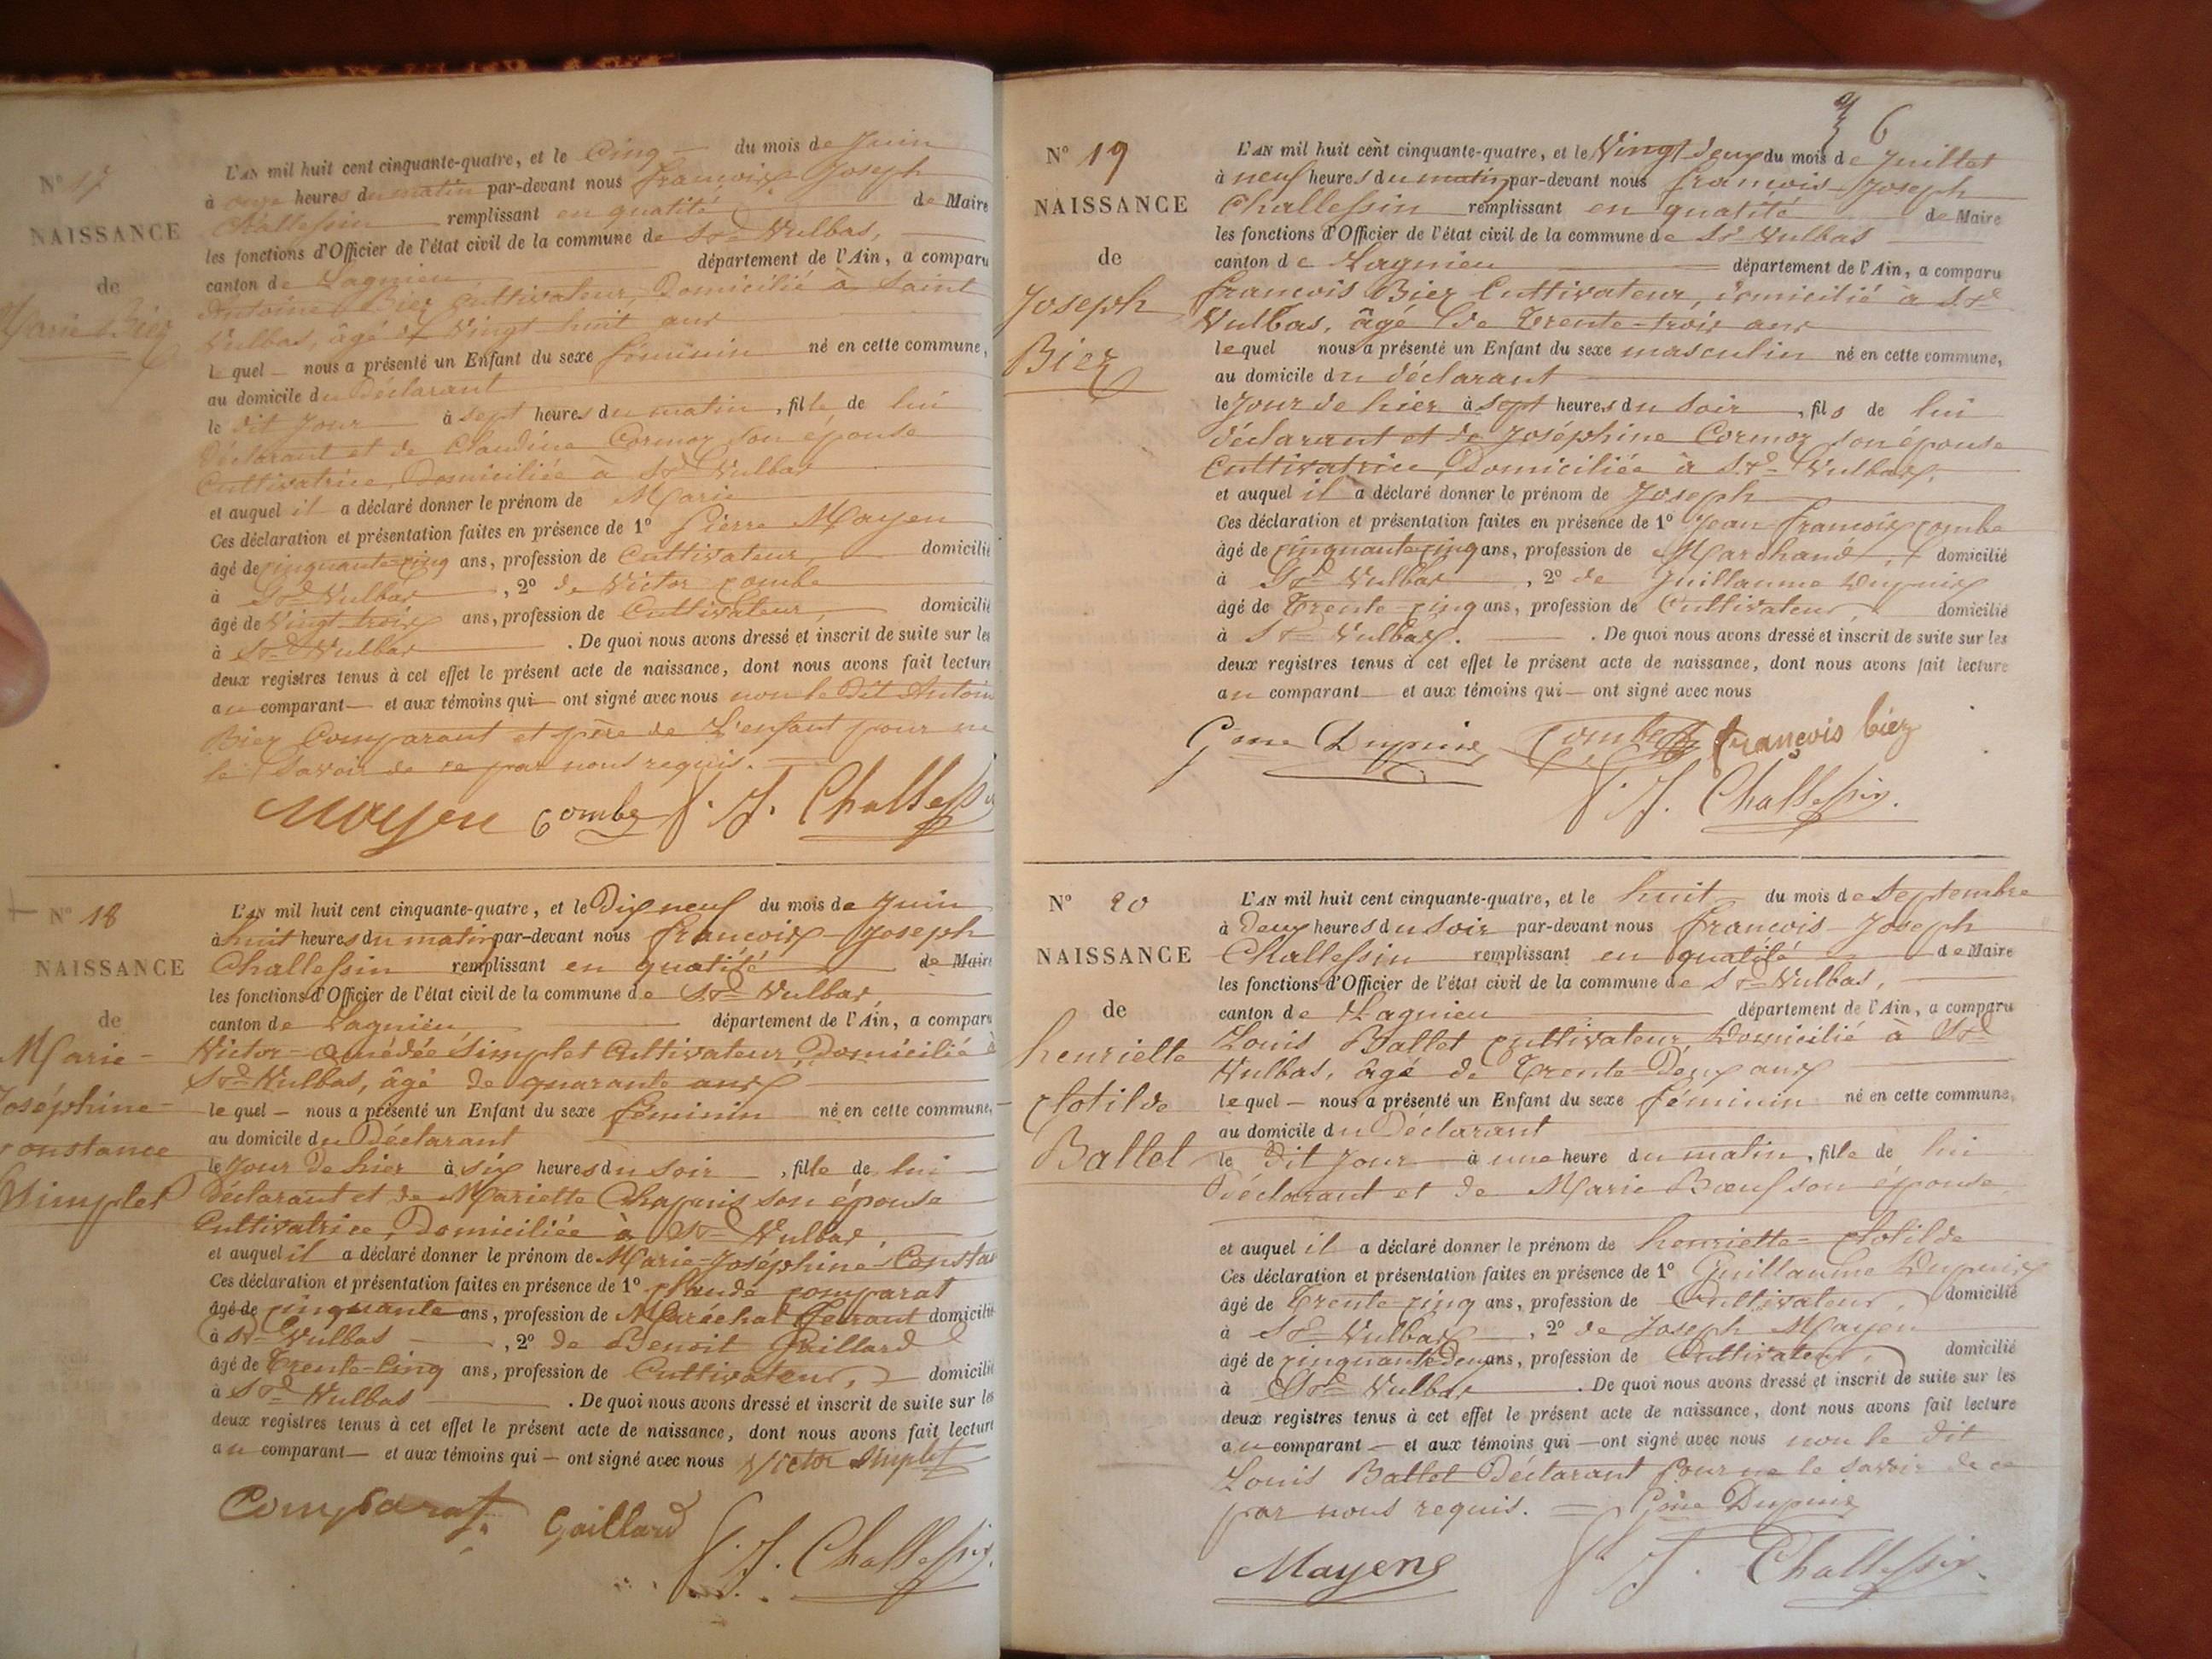 N° 17
NAISSANCE
de
Marie Biez
L'AN mil huit cent cinquante-quatre, et le Cinq du mois de Juin
à onze heures du matin par-devant nous francois Joseph
Challessin remplissant en qualité de Maire
les fonctions d'Officier de l'état civil de la commune de St Vulbas,
canton de Lagnieu département de l'Ain, a comparu
Antoine Biez Cultivateur, Domicilié à Saint
Vulbas, âgé de Vingt huit ans
le quel nous a présenté un Enfant du sexe féminin né en cette commune,
au domicile du Déclarant
le dit jour à sept heures du matin, fille de lui
déclarant et de Claudine Cormoz son épouse
Cultivatrice, Domiciliée à St Vulbas
et auquel il a déclaré donner le prénom de Marie
Ces déclaration et présentation faites en présence de 1° Pierre Mayen
âgé de cinquante-cinq ans, profession de Cultivateur, domicilié
à St Vulbas, 2° de Victor Combe
âgé de Vingt-trois ans, profession de Cultivateur, domicilié
à St Vulbas. De quoi nous avons dressé et inscrit de suite sur les
deux registres tenus à cet effet le présent acte de naissance, dont nous avons fait lecture
au comparant et aux témoins qui ont signé avec nous non le dit Antoin
Biez Comparant et père de L'enfant pour ne
le Savoir de ce par nous requis.
Mayen Combe f. J. Challessin
N° 18
NAISSANCE
de
Marie-
Joséphine-
Constance
Simplet
L'AN mil huit cent cinquante-quatre, et le Dix neuf du mois de Juin
à huit heures du matin par-devant nous francois-Joseph
Challessin remplissant en qualité de Maire
les fonctions d'Officier de l'état civil de la commune de St Vulbas,
canton de Lagnieu, département de l'Ain, a comparu
Victor-Amédée Simplet Cultivateur, Domicilié à
St Vulbas, âgé de quarante ans
le quel nous a présenté un Enfant du sexe féminin né en cette commune,
au domicile du Déclarant
le Jour de hier à six heures du soir, fille de lui
déclarant et de Mariette Chapuis son épouse
Cultivatrice, Domiciliée à St Vulbas,
et auquel il a déclaré donner le prénom de Marie-Joséphine-Constan
Ces déclaration et présentation faites en présence de 1° Claude Comparat
âgé de cinquante ans, profession de Maréchal ferrant domicilié
à St Vulbas, 2° de Benoit Gaillard
âgé de Trente-Cinq ans, profession de Cultivateur, domicilié
à St Vulbas. De quoi nous avons dressé et inscrit de suite sur les
deux registres tenus à cet effet le présent acte de naissance, dont nous avons fait lecture
au comparant et aux témoins qui ont signé avec nous Victor Simplet
Comparat Gaillard f. J. Challessin.
6
N° 19
NAISSANCE
de
Joseph
Biez
L'AN mil huit cent cinquante-quatre, et le Vingt deux du mois de Juillet
à neuf heures du matin par-devant nous francois-Joseph
Challessin remplissant en qualité de Maire
les fonctions d'Officier de l'état civil de la commune de St Vulbas
canton de Lagnieu département de l'Ain, a comparu
francois Biez Cultivateur, domicilié à St
Vulbas, âgé de Trente-trois ans
lequel nous a présenté un Enfant du sexe masculin né en cette commune,
au domicile du déclarant
le Jour de hier à sept heures du soir, fils de lui
déclarant et de Joséphine Cormoz son épouse
Cultivatrice, Domiciliée à St Vulbas,
et auquel il a déclaré donner le prénom de Joseph
Ces déclaration et présentation faites en présence de 1° Jean francois Combe
âgé de cinquante cinq ans, profession de Marchand, domicilié
à St Vulbas, 2° de Guillaume Dupuis
âgé de Trente-cinq ans, profession de Cultivateur, domicilié
à St Vulbas. De quoi nous avons dressé et inscrit de suite sur les
deux registres tenus à cet effet le présent acte de naissance, dont nous avons fait lecture
au comparant et aux témoins qui ont signé avec nous
Gme Dupuis Combe françois biez
f. J. Challessin.
N° 20
NAISSANCE
de
henriette
Clotilde
Ballet
L'AN mil huit cent cinquante-quatre, et le huit du mois de Septembre
à Deux heures du soir par-devant nous francois-Joseph
Challessin remplissant en qualité de Maire
les fonctions d'Officier de l'état civil de la commune de St Vulbas,
canton de Lagnieu département de l'Ain, a comparu
Louis Ballet Cultivateur, Domicilié à St
Vulbas, âgé de Trente-Deux ans
lequel nous a présenté un Enfant du sexe féminin né en cette commune,
au domicile du Déclarant
le dit jour à une heure du matin, fille de lui
déclarant et de Marie Bœuf son épouse
et auquel il a déclaré donner le prénom de henriette-Clotilde
Ces déclaration et présentation faites en présence de 1° Guillaume Dupuis
âgé de Trente-cinq ans, profession de Cultivateur, domicilié
à St Vulbas, 2° de Joseph Mayen
âgé de cinquante Deux ans, profession de Cultivateur, domicilié
à St Vulbas. De quoi nous avons dressé et inscrit de suite sur les
deux registres tenus à cet effet le présent acte de naissance, dont nous avons fait lecture
au comparant et aux témoins qui ont signé avec nous non le dit
Louis Ballet Déclarant pour ne le savoir de ce
par nous requis. Gme Dupuis
Mayens f. J. Challessin.